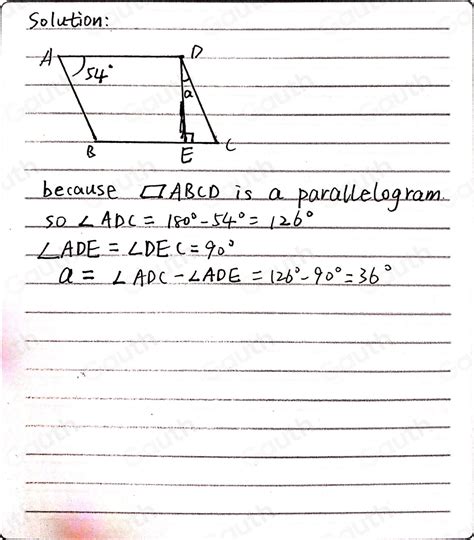 Solution:
A
D
54°
a
B
E
C
because ▱ABCD is a parallelogram.
so ∠ADC = 180° - 54° = 126°
∠ADE = ∠DEC = 90°
a = ∠ADC - ∠ADE = 126° - 90° = 36°
Gauth